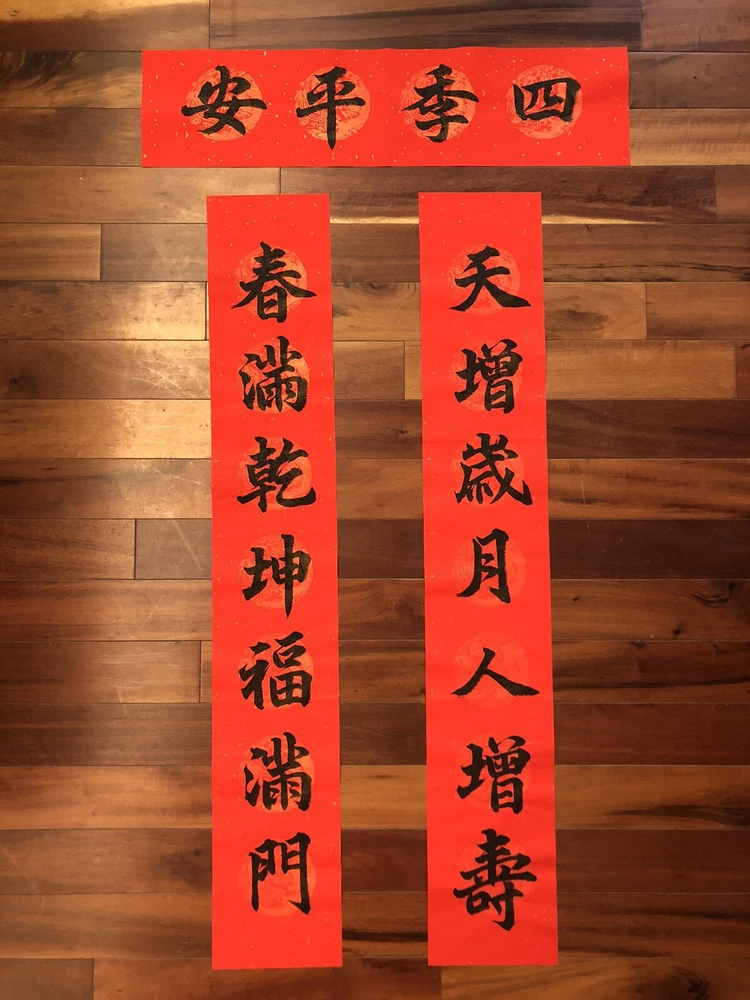 四季平安
天增歳月人增壽
春滿乾坤福滿門